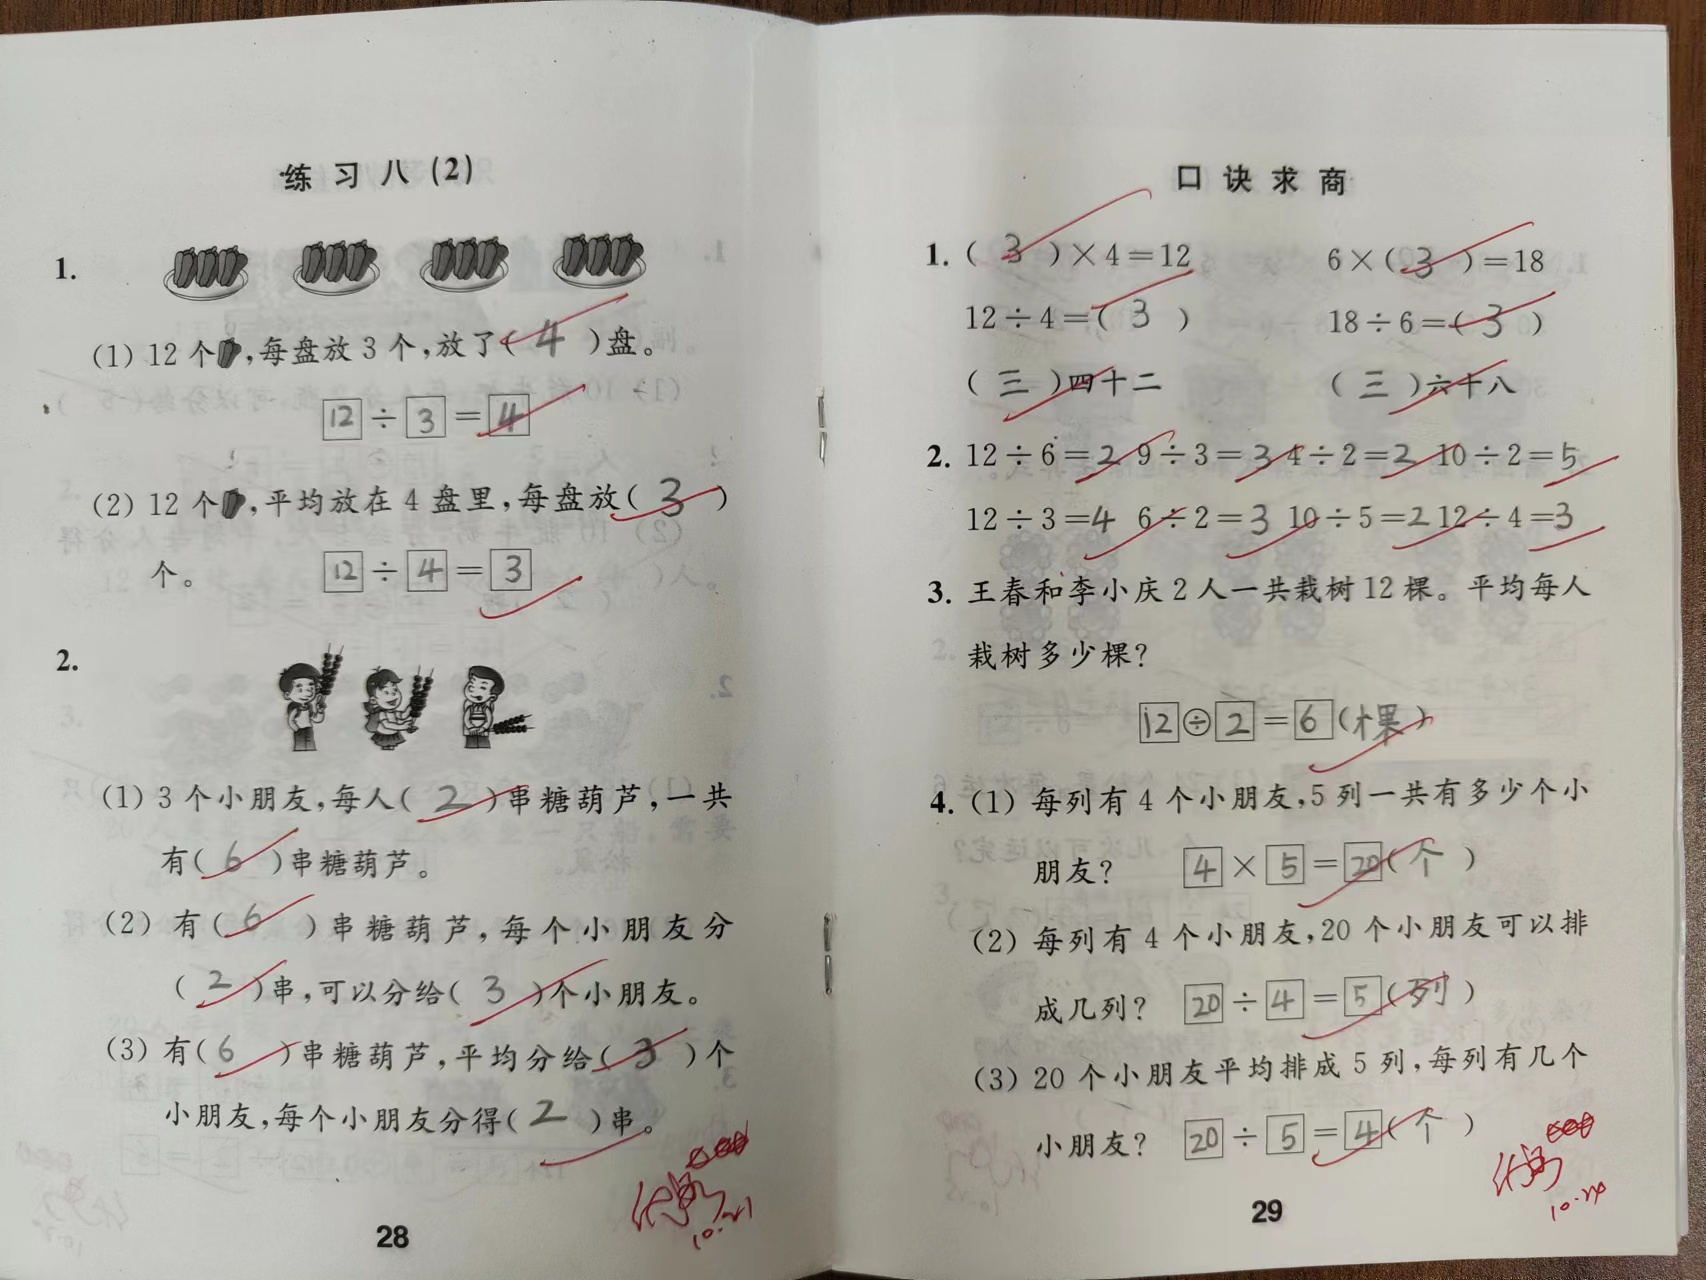 练习八(2)
1.
(1) 12个,每盘放3个,放了(4)盘。
12÷3=4
(2) 12个,平均放在4盘里,每盘放(3)
个。 12÷4=3
2.
(1) 3个小朋友,每人(2)串糖葫芦,一共
有(6)串糖葫芦。
(2) 有(6)串糖葫芦,每个小朋友分
(2)串,可以分给(3)个小朋友。
(3) 有(6)串糖葫芦,平均分给(3)个
小朋友,每个小朋友分得(2)串。
10.21
28
口诀求商
1. (3)×4=12 6×(3)=18
12÷4=(3) 18÷6=(3)
(三)四十二 (三)六十八
2. 12÷6=2 9÷3=3 4÷2=2 10÷2=5
12÷3=4 6÷2=3 10÷5=2 12÷4=3
3. 王春和李小庆2人一共栽树12棵。平均每人
栽树多少棵?
12÷2=6(棵)
4. (1) 每列有4个小朋友,5列一共有多少个小
朋友? 4×5=20(个)
(2) 每列有4个小朋友,20个小朋友可以排
成几列? 20÷4=5(列)
(3) 20个小朋友平均排成5列,每列有几个
小朋友? 20÷5=4(个)
29